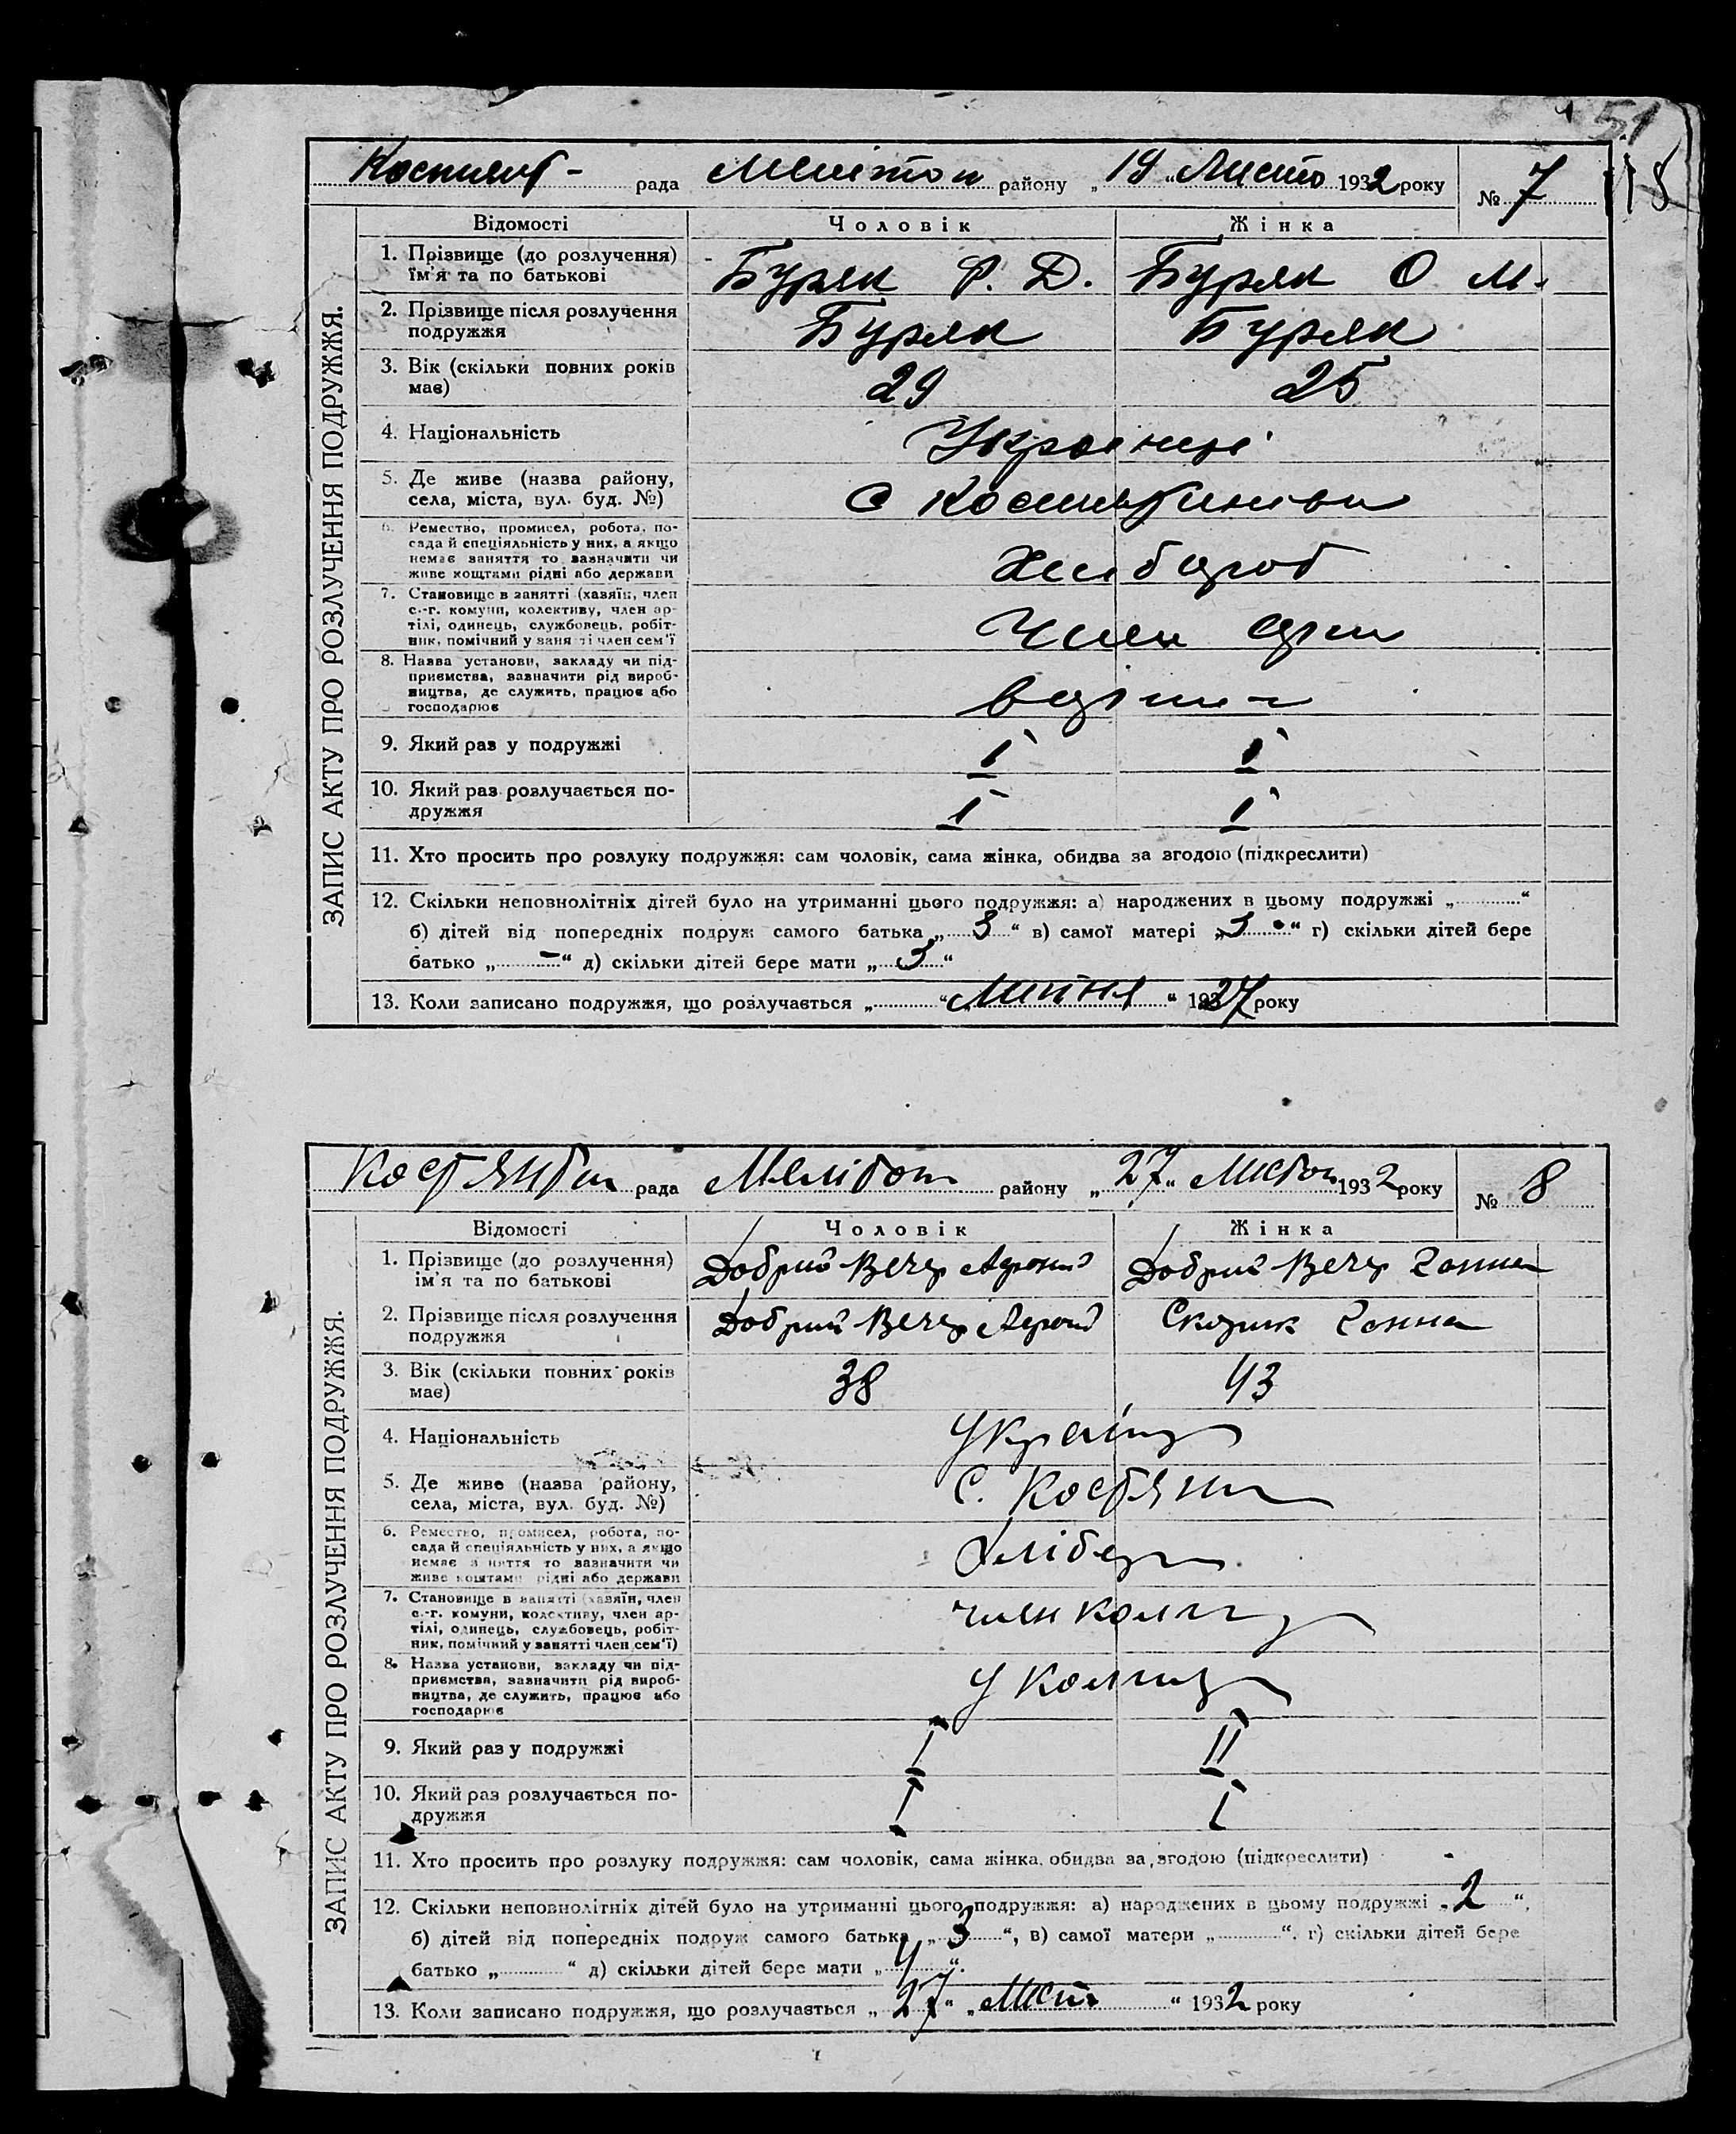 51
118
Мелітоп району „ 19 “ Листо 1932 року № 7
рада
ЗАПИС АКТУ ПРО РОЗЛУЧЕННЯ ПОДРУЖЖЯ.
Відомості Чоловік Жінка
1. Прізвище (до розлучення) Буряк Ф. Д. Буряк О М.
ім'я та по батькові
2. Прізвище після розлучення Буряк Буряк
подружжя
3. Вік (скільки повних років 29 25
має)
4. Національність Українці
5. Де живе (назва району, С
села, міста, вул. буд. №)
6. Ремество, промисел, робота, по-
сада й спеціяльність у них, а якщо
немає заняття то зазначити чи
живе коштами рідні або держави
7. Становище в занятті (хазяїн, член Член
с.-г. комуни, колективу, член ар-
тілі, одинець, службовець, робіт-
ник, помічний у занятті член сем'ї
8. Назва установи, закладу чи під-
приємства, зазначити рід вироб-
ництва, де служить, працює або
господарює
9. Який раз у подружжі I I
10. Який раз розлучається по- I I
дружжя
11. Хто просить про розлуку подружжя: сам чоловік, сама жінка, обидва за згодою (підкреслити)
12. Скільки неповнолітніх дітей було на утриманні цього подружжя: а) народжених в цьому подружжі „ “
б) дітей від попередніх подруж самого батька „ 3 “ в) самої матері „ 3 “ г) скільки дітей бере
батько „ - “ д) скільки дітей бере мати „ 3 “
13. Коли записано подружжя, що розлучається „ “ „ Липня “ 1927 року
рада Меліто району „ 27 “ Листоп 1932 року № 8
ЗАПИС АКТУ ПРО РОЗЛУЧЕННЯ ПОДРУЖЖЯ.
Відомості Чоловік Жінка
1. Прізвище (до розлучення) Добрий Вечер Добрий Вечер Ганна
ім'я та по батькові
2. Прізвище після розлучення Добрий Вечер Скорик Ганна
подружжя
3. Вік (скільки повних років 38 43
має)
4. Національність Українц
5. Де живе (назва району, С. Костян
села, міста, вул. буд. №)
6. Ремество, промисел, робота, по- Хлібор
сада й спеціяльність у них, а якщо
немає заняття то зазначити чи
живе коштами рідні або держави
7. Становище в занятті (хазяїн, член член колг
с.-г. комуни, колективу, член ар-
тілі, одинець, службовець, робіт-
ник, помічний у занятті член сем'ї)
8. Назва установи, закладу чи під- у колгоспі
приємства, зазначити рід вироб-
ництва, де служить, працює або
господарює
9. Який раз у подружжі I II
10. Який раз розлучається по- I I
дружжя
11. Хто просить про розлуку подружжя: сам чоловік, сама жінка, обидва за згодою (підкреслити)
12. Скільки неповнолітніх дітей було на утриманні цього подружжя: а) народжених в цьому подружжі „ 2 “,
б) дітей від попередніх подруж самого батька „ 3 “, в) самої матери „ “. г) скільки дітей бере
батько „ “ д) скільки дітей бере мати „ 4 “.
13. Коли записано подружжя, що розлучається „ 27 “ „ Лист “ 1932 року